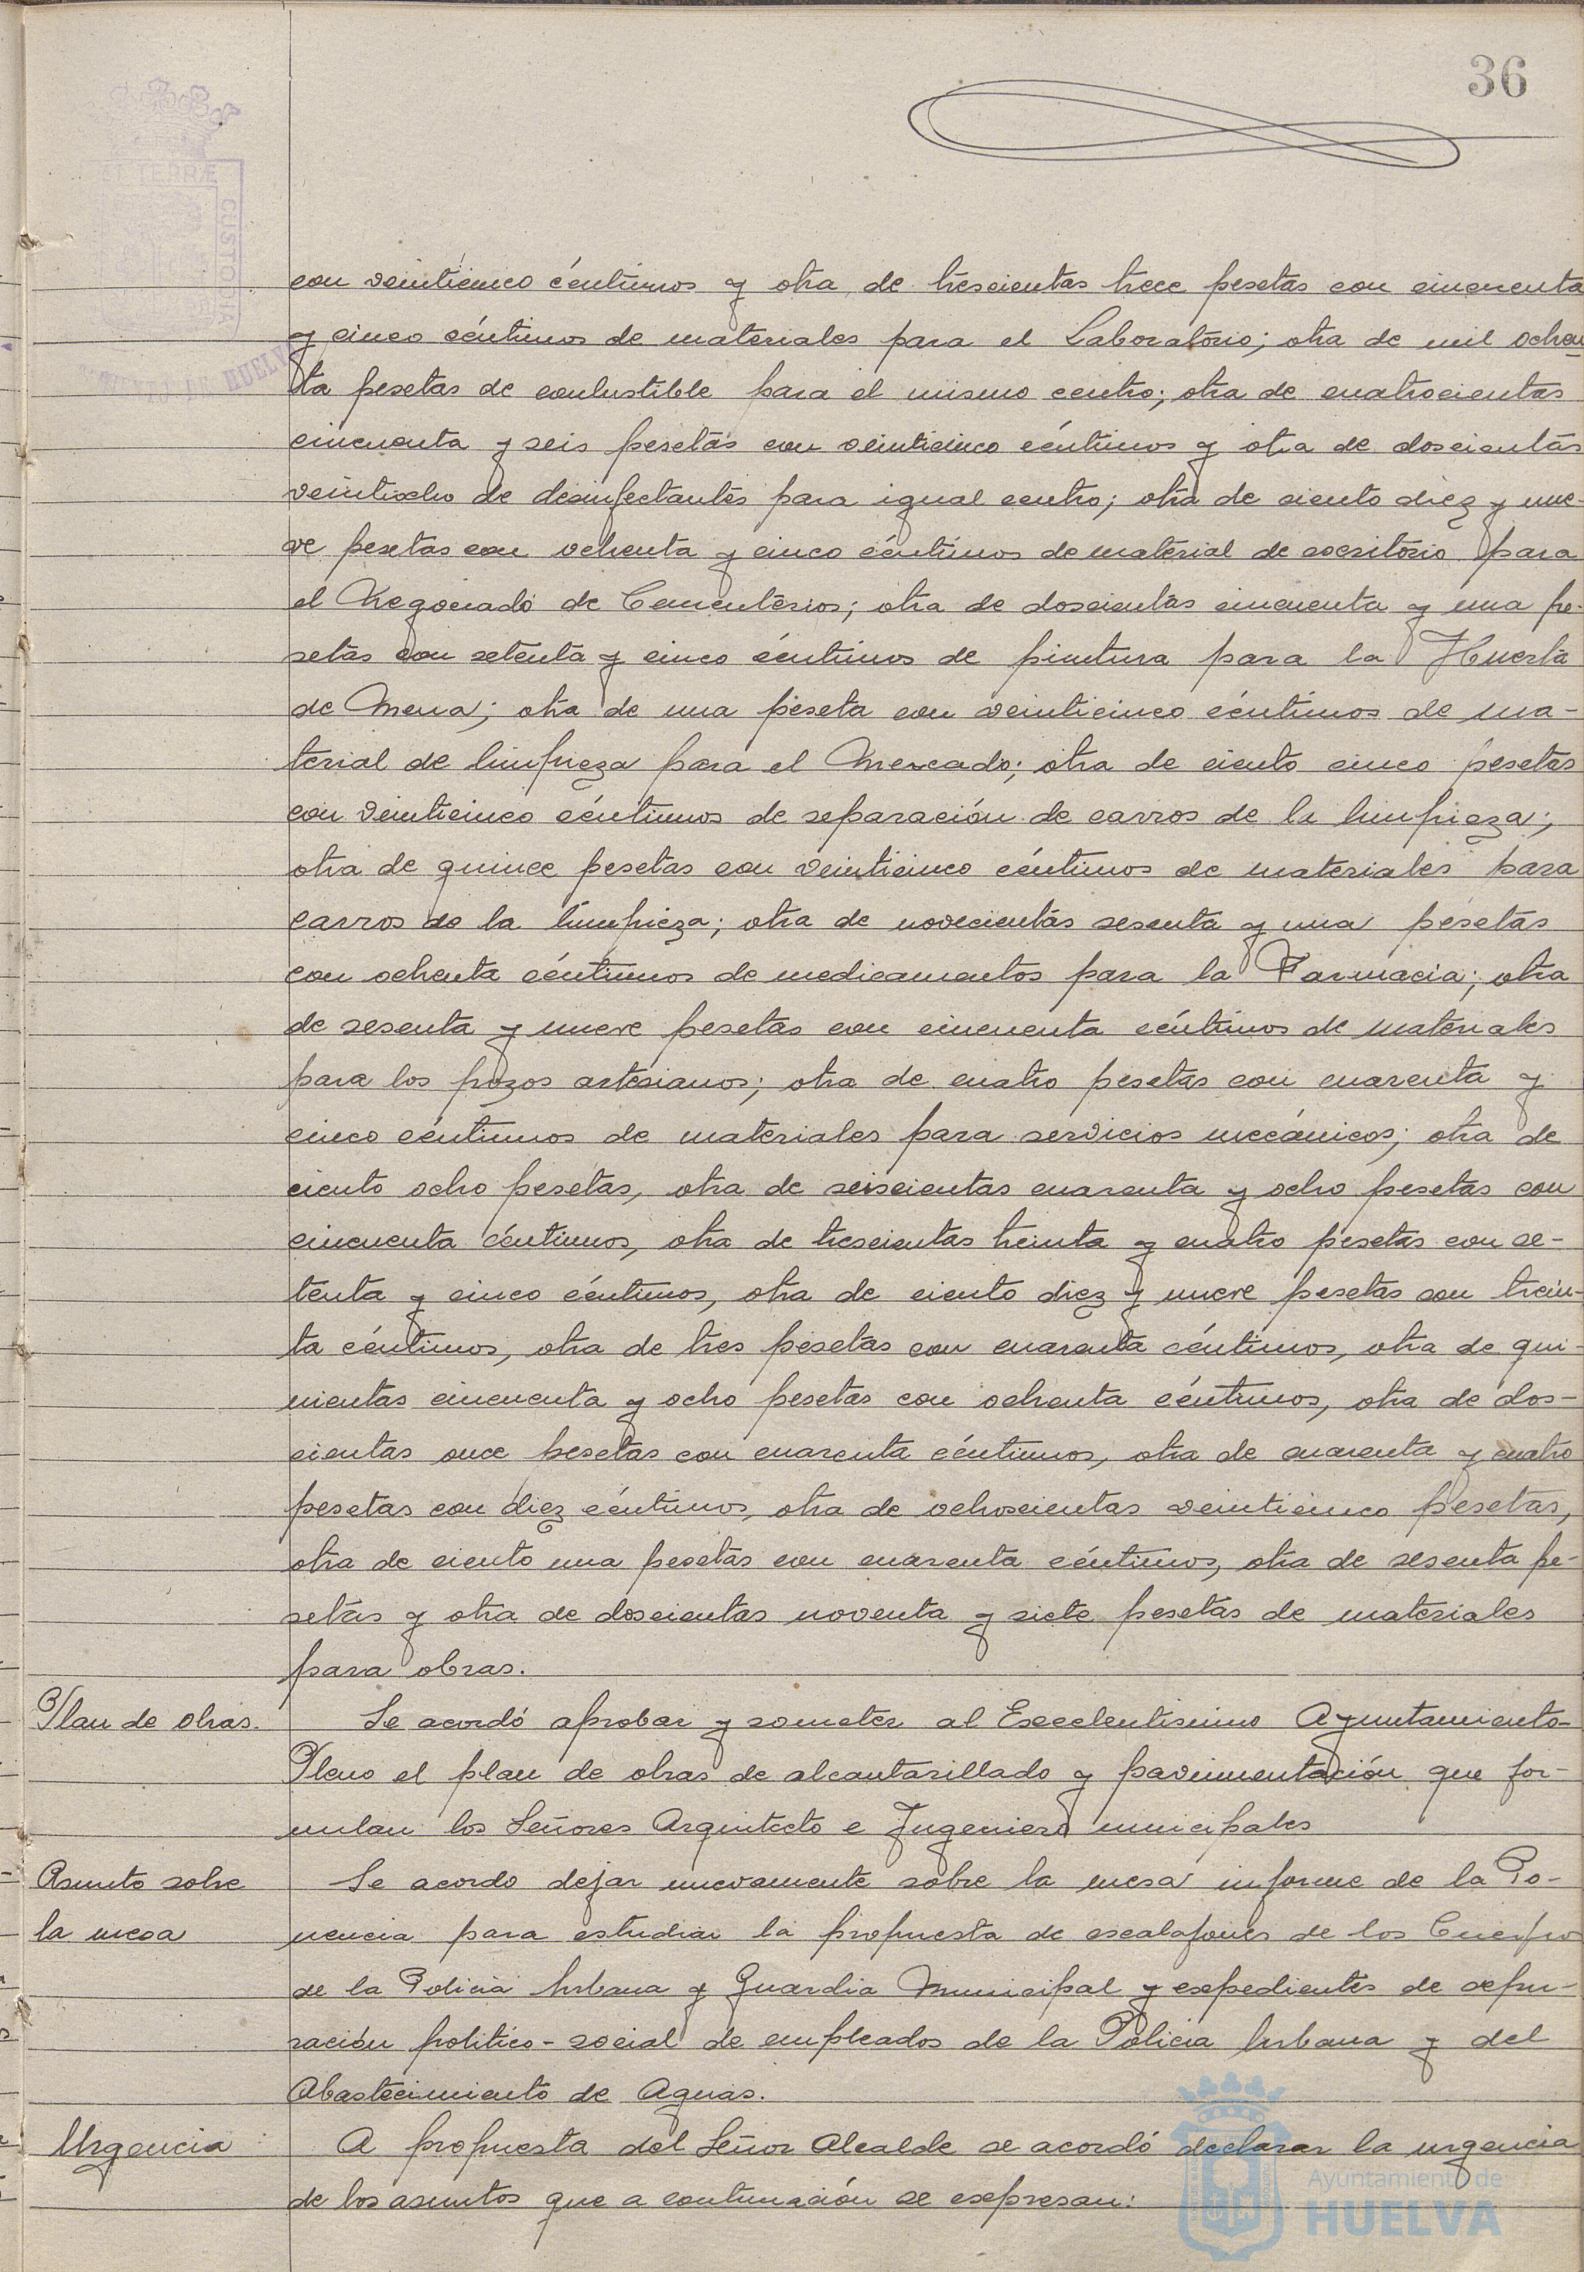 36
ET TERRÆ
CUSTODIA
DE HUELVA
con veinticinco céntimos y otra de trescientas trece pesetas con cincuenta
y cinco céntimos de materiales para el Laboratorio; otra de mil ochen
ta pesetas de conbustible para el mismo centro; otra de cuatrocientas
cincuenta y seis pesetas con veinticinco céntimos y otra de doscientas
veintiocho de desinfectantes para igual centro; otra de ciento diez y nue-
ve pesetas con ochenta y cinco céntimos de material de escritorio para
el Negociado de Cementerios; otra de doscientas cincuenta y una pe-
setas con setenta y cinco céntimos de pintura para la Huerta
de Mena; otra de una peseta con veinticinco céntimos de ma-
terial de limpieza para el Mercado; otra de ciento cinco pesetas
con veinticinco céntimos de reparación de carros de la limpieza;
otra de quince pesetas con veinticinco céntimos de materiales para
carros de la limpieza; otra de novecientas sesenta y una pesetas
con ochenta céntimos de medicamentos para la Farmacia; otra
de sesenta y nueve pesetas con cincuenta céntimos de materiales
para los pozos artesianos; otra de cuatro pesetas con cuarenta y
cinco céntimos de materiales para servicios mecánicos; otra de
ciento ocho pesetas, otra de seiscientas cuarenta y ocho pesetas con
cincuenta céntimos, otra de trescientas treinta y cuatro pesetas con se-
tenta y cinco céntimos, otra de ciento diez y nueve pesetas con trein-
ta céntimos, otra de tres pesetas con cuarenta céntimos, otra de qui-
nientas cincuenta y ocho pesetas con ochenta céntimos, otra de dos-
cientas once pesetas con cuarenta céntimos, otra de cuarenta y cuatro
pesetas con diez céntimos, otra de ochocientas veinticinco pesetas,
otra de ciento una pesetas con cuarenta céntimos, otra de sesenta pe-
setas y otra de doscientas noventa y siete pesetas de materiales
para obras.
Plan de obras. Se acordó aprobar y someter al Excelentisimo Ayuntamiento-
Pleno el plan de obras de alcantarillado y pavimentación que for-
mulan los Señores Arquitecto e Ingeniero municipales
Asunto sobre Se acordo dejar nuevamente sobre la mesa informe de la Po-
la mesa nencia para estudiar la propuesta de escalafones de los Cuerpos
de la Policia Urbana y Guardia Municipal y expedientes de depu-
ración politico-social de empleados de la Policia Urbana y del
Abastecimiento de Aguas.
Urgencia A propuesta del Señor Alcalde se acordó declarar la urgencia
de los asuntos que a continuación se expresan:
Ayuntamiento de
HUELVA